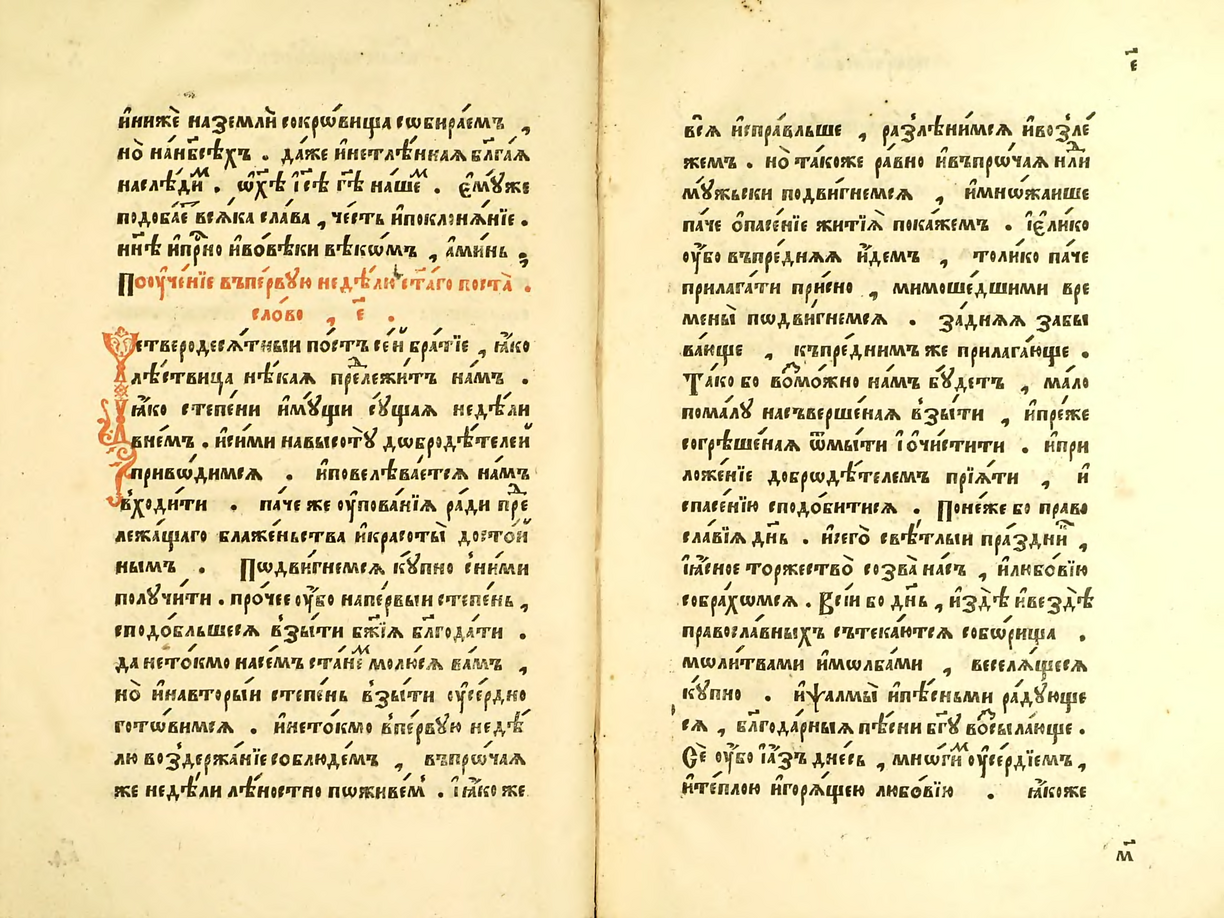 и҆нижѐ наземлѝ сокрѡ́вища сѡбира́емъ ,
но̀ нан҃бсѣ́хъ . да́же и҆нетлѣ́ннаѧ бл҃га́ѧ
наслѣ́диⷨ . ѡ҆х҃ѣ і҆с҃ѣ гд҃ѣ на́шеⷨ . є҆мꙋ́же
подоба́е҇ всѧ́ка сла́ва , че́сть и҆поклонѧ́нїе .
нн҃ѣ и҆при҇но и҆во́вѣки вѣкѡ́мъ , а҆ми́нь ⁏
Пооуч҆е́нїе въпе́рвꙋю недѣ́лю ст҃а́го поста̀ .
сло́во , є҃ .
Четверодесѧ́тныи по́стъ се́й бра́тїе , ꙗ҆́ко
лѣ́ствица нѣ́каѧ преⷣлежи́тъ на́мъ .
ꙗ҆́ко степе́ни и҆мꙋ́щи сꙋ́щаѧ недѣ́ли
вне́мъ . и҆си́ми навысотꙋ̀ дѡбродѣ́телей
привѡ́димсѧ . и҆повелѣва́етсѧ на́мъ
входи́ти . па́че же оу҆пова́нїѧ ра́ди преⷣ
лежа́щаго блаже́ньства и҆красоты̀ досто́й
нымъ . Пѡдви́гнемсѧ кꙋ́пно сни́ми
полꙋчи́ти . про́чее оу҆́бо напе́рвыи степе́нь ,
сподо́бльшесѧ взы́ти бж҃їѧ бл҃года́ти .
да нето́кмо насе́мъ ста́неⷨ молю́сѧ ва́мъ ,
но̀ и҆навторы́и степе́нь взы́ти оу҆се́рдно
гото́вимсѧ . и҆нето́кмо впе́рвꙋю недѣ́
лю воздержа́нїе соблюде́мъ , въпрѡ́чаѧ
же недѣ́ли лѣ́ностно пѡживе́м . і҆ꙗ҆́ко же
всѧ̀ и҆спра́вльше , разлѣни́мсѧ и҆возле́
жемъ . но̀ та́коже ра́вно и҆въпрѡ́чаѧ нлⷣи
мꙋ́жьски подви́гнемсѧ , и҆мнѡ́жаише
па́че ѻ҆пасе́нїе житїѧ̀ пока́жемъ . і҆є҆ли́ко
оу҆́бо въпре́днѧѧ и҆́демъ , толи́ко па́че
прилага́ти при́сно , мимоше́дшими вре
мены̀ пѡдви́гнемсѧ . за́днѧѧ забы
ва́юще , къпре́днимъ же прилага́юще .
Та́ко бо воⷥмо́жно на́мъ бꙋ́детъ , ма́ло
пома́лꙋ насъверше́наѧ взы́ти , и҆пре́же
согрѣше́наѧ ѿмы́ти і҆ѻ҆чи́стити . и҆при
ложе́нїе добрѡдѣ́телемъ прїѧ́ти , и҆
спасе́нїю сподо́битисѧ . Поне́же бо право
сла́вїѧ дн҃ь . и҆сего̀ свѣ́тлыи пра́здниⷦ ,
і҆ꙗ҆́сное торжество̀ созва̀ на́съ , и҆любо́вїю
собра́хѡмсѧ . Всі́и бо дн҃ь , и҆здѣ̀ и҆вездѣ̀
правосла́вныхъ сътека́ютсѧ собѡ́рища .
мѡли́твами и҆мѡлба́ми , веселѧ́щесѧ
кꙋ́пно . и҆ѱалмы̀ и҆пѣ́сньми ра́дꙋюще
сѧ , бл҃года́рныѧ пѣ́сни бг҃ꙋ воⷥсыла́юще .
Сѐ оу҆́бо і҆а҆́зъ дне́сь , мнѡ́гиⷨ оу҆се́рдїемъ ,
и҆те́плою и҆горѧ́щею любо́вїю . ꙗ҆́коже
є҃
м҃